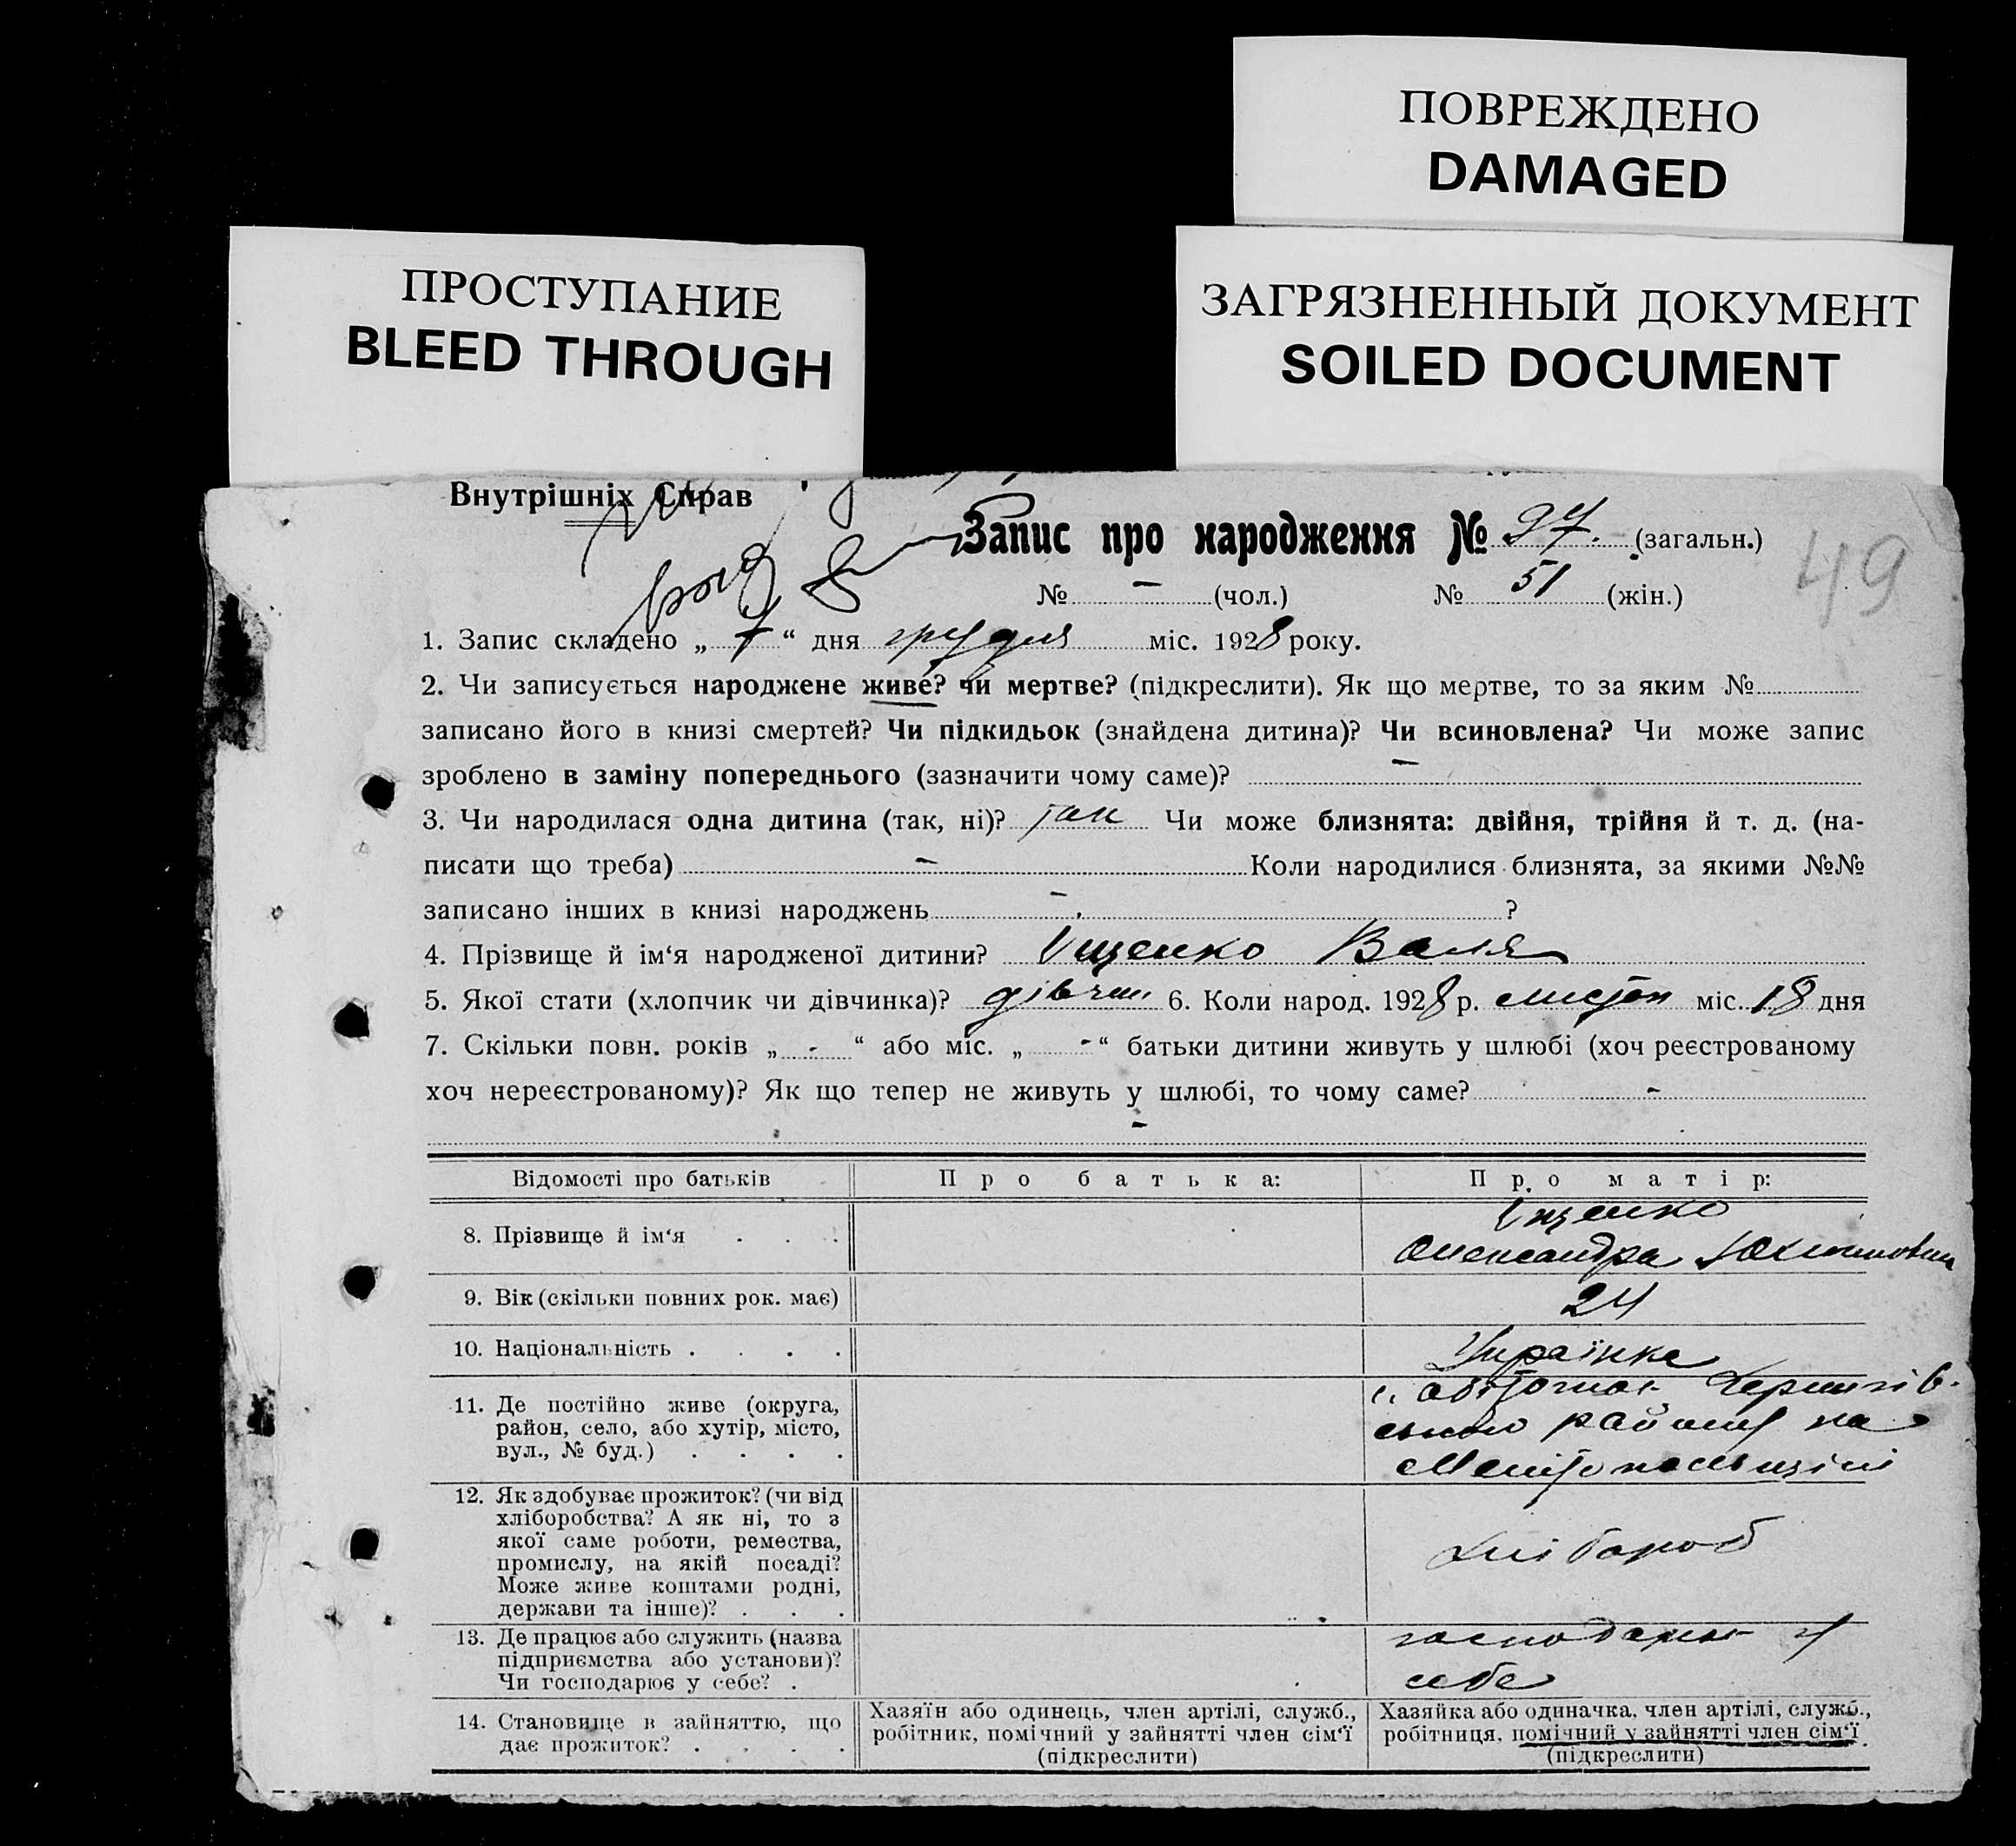 ПОВРЕЖДЕНО
DAMAGED
ПРОСТУПАНИЕ
BLEED THROUGH
ЗАГРЯЗНЕННЫЙ ДОКУМЕНТ
SOILED DOCUMENT
Внутрішніх Справ
Запис про народження № 97. (загальн.)
49
№ - (чол.) № 51 (жін.)
1. Запис складено „ 7 “ дня грудня міс. 1928 року.
2. Чи записується народжене живе? чи мертве? (підкреслити). Як що мертве, то за яким №
записано його в книзі смертей? Чи підкидьок (знайдена дитина)? Чи всиновлена? Чи може запис
зроблено в заміну попереднього (зазначити чому саме)? -
3. Чи народилася одна дитина (так, ні)? так Чи може близнята: двійня, трійня й т. д. (на-
писати що треба) - Коли народилися близнята, за якими №№
записано інших в книзі народжень - ?
4. Прізвище й ім‘я народженої дитини? Іщенко Валя
5. Якої стати (хлопчик чи дівчинка)? дівчин 6. Коли народ. 1928 р. листоп міс. 18 дня
7. Скільки повн. років „ - “ або міс. „ - “ батьки дитини живуть у шлюбі (хоч реєстрованому
хоч нереєстрованому)? Як що тепер не живуть у шлюбі, то чому саме? -
-
Відомості про батьків Про батька: Про матір:
8. Прізвище й ім‘я . . . Іщенко
Олександра Юхимовна
9. Вік (скільки повних рок. має) 24
10. Національність . . . . Українка
11. Де постійно живе (округа,
район, село, або хутір, місто,
вул., № буд.) . . . .
Чернігів-
ського району на
Мелітопольщині
12. Як здобуває прожиток? (чи від
хліборобства? А як ні, то з
якої саме роботи, ремества,
промислу, на якій посаді?
Може живе коштами родні,
держави та інше)? . . .
хлібороб
13. Де працює або служить (назва
підприємства або установи)?
Чи господарює у себе? .
господарює у
себе
14. Становище в зайняттю, що
дає прожиток? . . . .
Хазяїн або одинець, член артілі, служб.,
робітник, помічний у зайнятті член сім‘ї
(підкреслити)
Хазяйка або одиначка, член артілі, служб.,
робітниця, помічний у зайнятті член сім‘ї
(підкреслити)